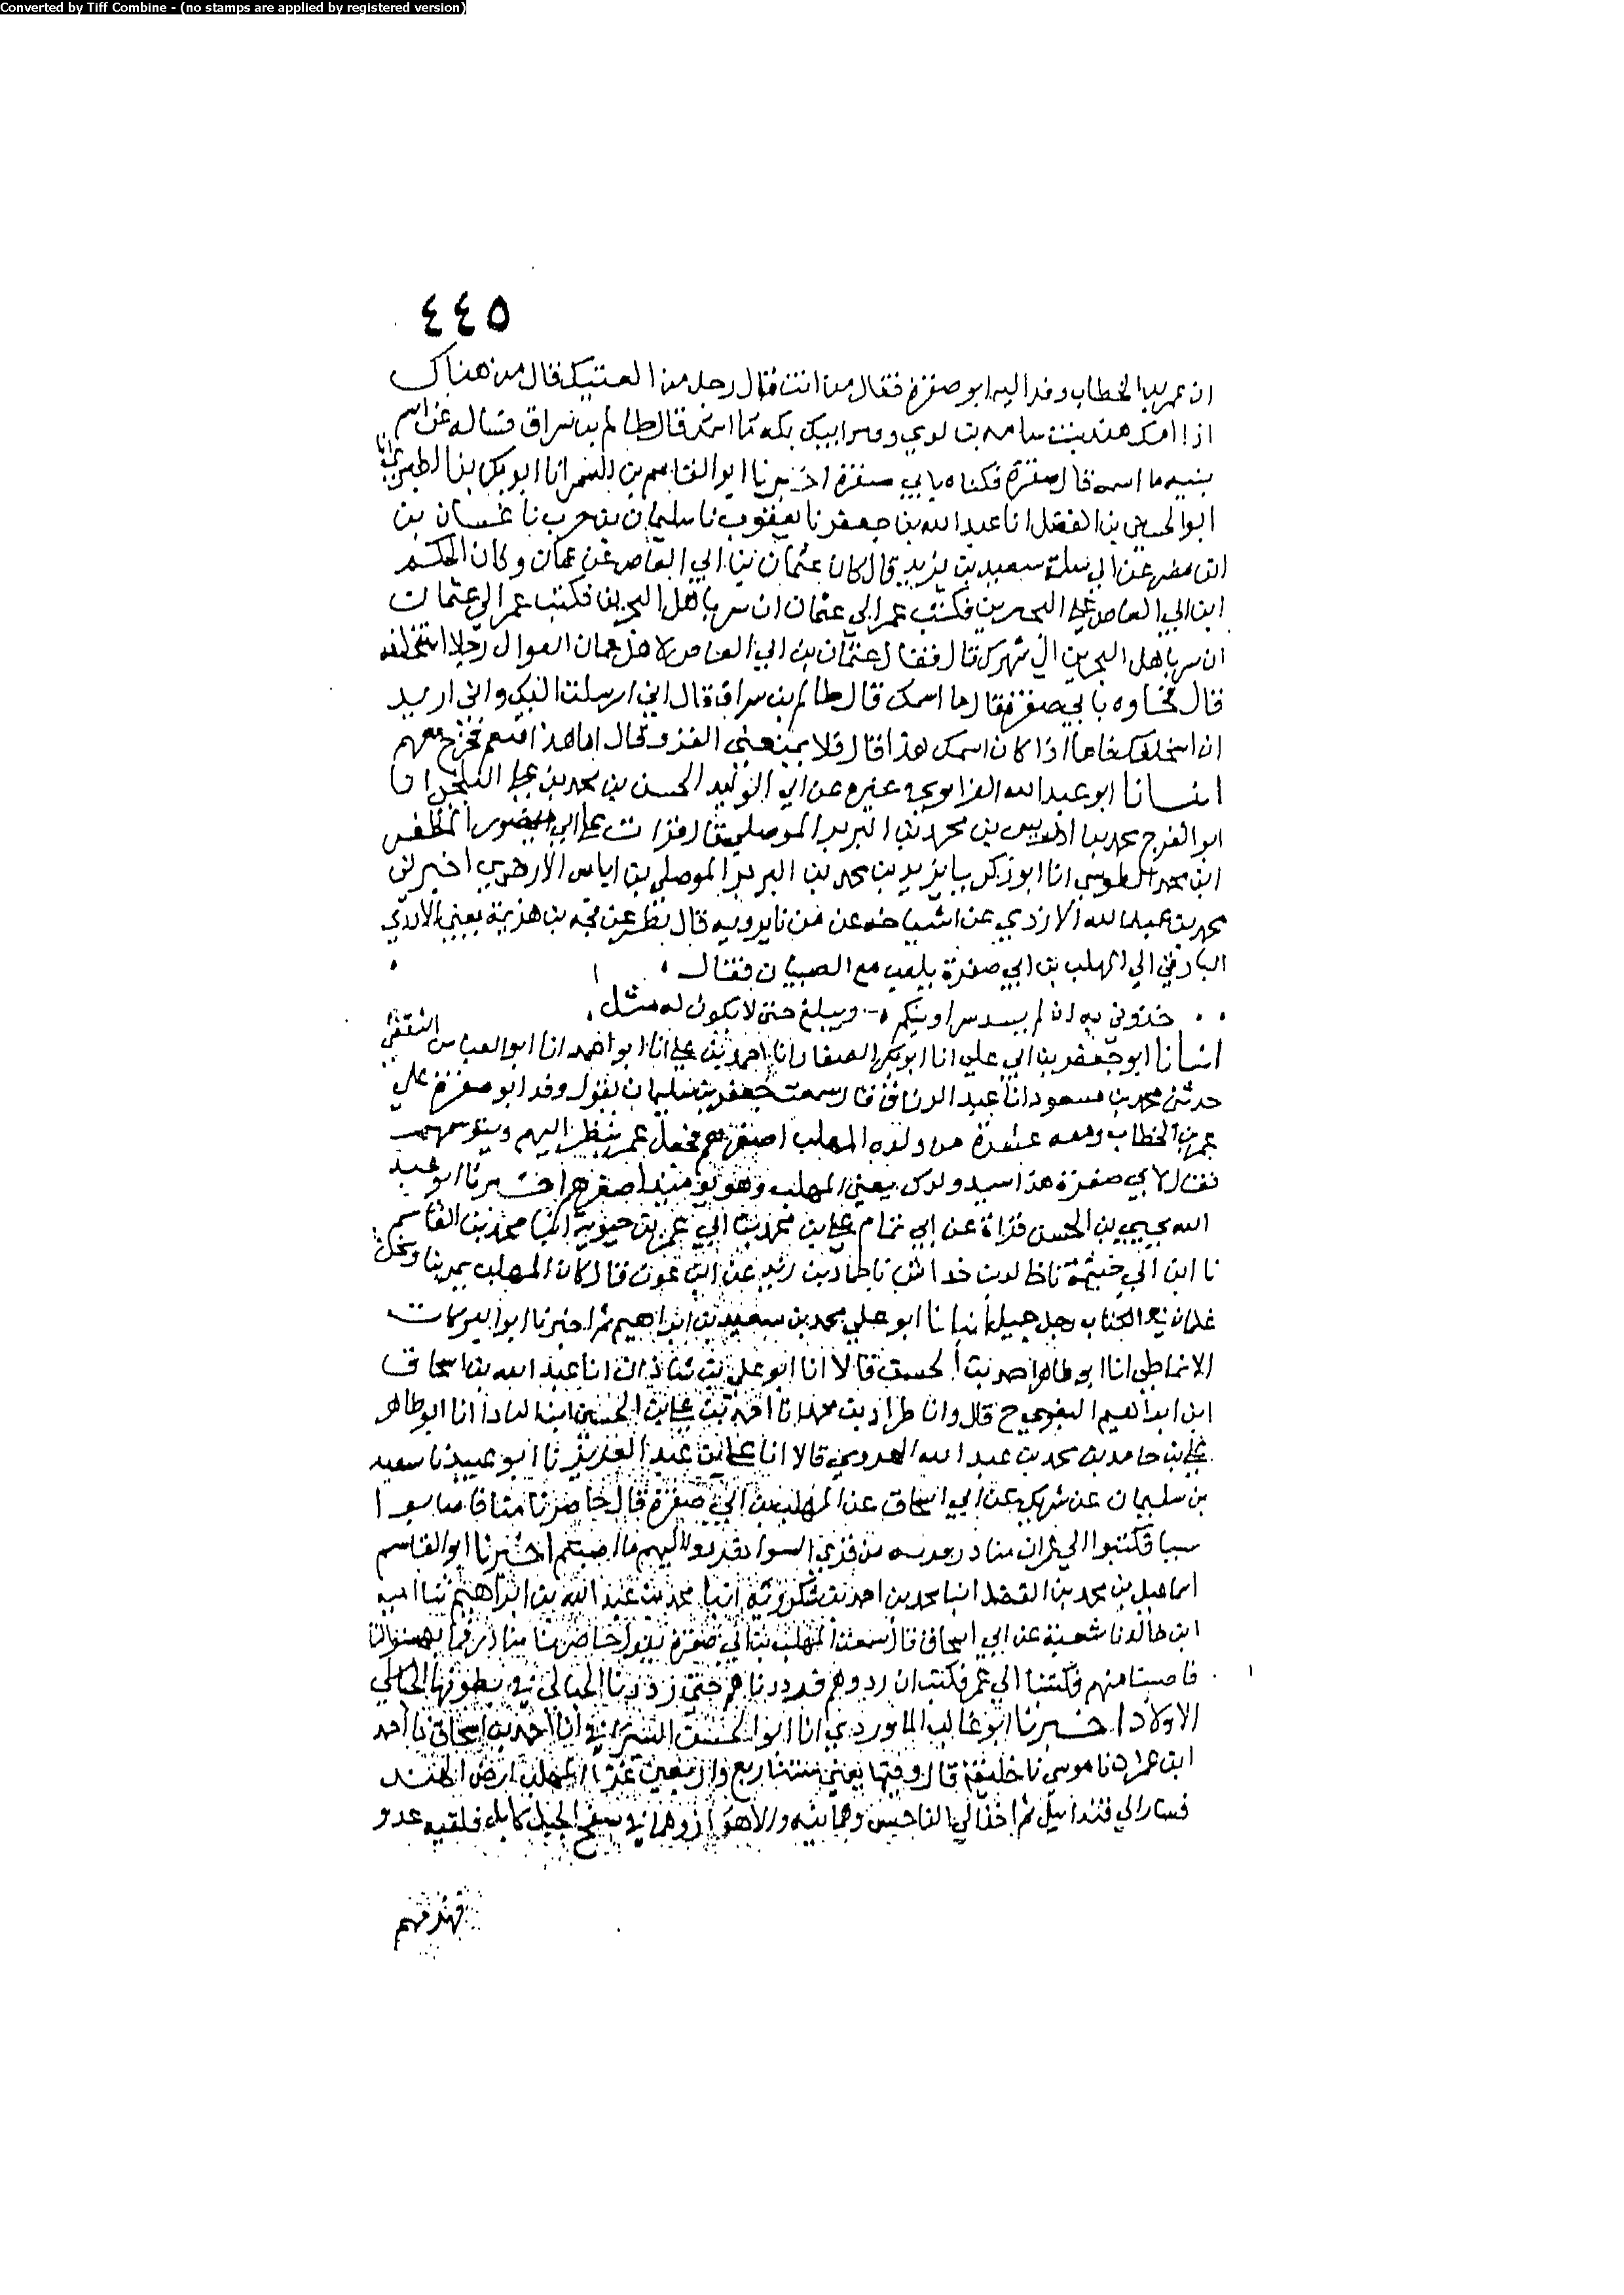 Converted by Tiff Combine - (no stamps are applied by registered version)
٤٤٥
ان عمر بن الخطاب وفد اليه ابو صفرة فقال من انت قال رجل من العتيك قال من هناك
اذا امك هند بنت سامه بن لوي قال ظالم بن سراق فساله عن اسم
بنيه ما اسمه قال صفرة فكناه بابي صفرة اخبرنا ابو القاسم بن السمرانا ابو بكر بن الطبري انا
ابو الحسين بن الفضل انا عبد الله بن جعفر نا يعقوب نا سليمان بن حرب نا غسان بن
مضر عن ابي سلمة سعيد بن يزيد قال كان عثمان بن ابي العاص عن عمان وكان الحكم
ابن ابي العاص علي البحرين فكتب عمر الي عثمان ان سر باهل البحرين فكتب عمر الي عثمان
ان سر باهل البحرين الي شهرك قال فقال عثمان بن ابي العاص لاهل عمان رجلا استخلفه
قال فجاوه بابي صفرة فقال ما اسمك قال ظالم بن سراق قال اني ارسلت اليك واني اريد
ان استخلفك فاما اذا كان اسمك هذا قال فلا يمنعني الغزو قال اما هذا فنعم فخرج معهم
انبانا ابو عبد الله الفراوي وغيره عن ابي الوليد الحسن بن محمد بن علي البلخي انا
ابو الفرج محمد بن ادريس بن محمد الموصلي قال قرات علي ابي منصور المظفر
ابن محمد الطوسي انا ابو زكريا يزيد بن محمد بن الموصلي بن اياس الازدي اخبرني
محمد بن عبد الله الازدي عن اشياخه عن من نا يرويه قال نظر بن هزيمة يعني الازدي
البارقي الي المهلب بن ابي صفرة يلعب مع الصبيان فقال
خذوني به ان لم يسد سراوتكم ويبلغ حتي لا يكون له مثل
انبانا ابو جعفر بن ابي علي انا ابو بكر الصفار انا احمد بن علي انا ابو احمد انا ابو العباس الثقفي
حدثني محمد بن مسعود انا عبد الرزاق قال سمعت جعفر بن سليمان يقول وفد ابو صفرة علي
عمر بن الخطاب ومعه عشرة من ولده المهلب اصغرهم فجعل عمر ينظر اليهم ويتوسمهم
فقال لابي صفرة هذا سيد ولدك يعني المهلب وهو يومئذ اصغرهم اخبرنا ابو عبد
الله يحيي بن الحسن قراة عن ابي تمام علي بن محمد بن ابي عمر بن حيوية انبا محمد بن القاسم
نا ابن ابي خيثمة نا خالد بن خداش نا حماد بن زيد عن ابن عون قال كان المهلب يمر بنا ونحن
غلمان في الكتاب رجل جميل انبانا ابو علي محمد بن سعيد بن ابراهيم ثم اخبرنا ابو البركات
الانماطي انا ابو طاهر احمد بن الحسن قالا انا ابو علي بن شاذان انا عبد الله بن اسحاق
ابن ابراهيم البغوي ح قال وانا طراد بن محمد انا احمد بن علي بن الحسين ابن البادا انا ابو طاهر
علي بن حامد بن محمد بن عبد الله الهروي قالا انا علي بن عبد العزيز نا ابو عبيد نا سعيد
بن سليمان عن شريك عن ابي اسحاق عن المهلب بن ابي صفرة قال حاصرنا مناذر فاصابوا
سبيا فكتبوا الي عمر ان مناذر من قري السواد فردوا اليهم ما اصبتم اخبرنا ابو القاسم
اسماعيل بن محمد بن الفضل انبا محمد بن احمد بن شكروية انبا محمد بن عبد الله بن ابراهيم ثنا امية
ابن خالد نا شعبة عن ابي اسحاق قال سمعت المهلب بن ابي صفرة يقول حاصرنا مناذر
فاصبنا منهم فكتبنا الي عمر فكتب ان ردوهم فرددناهم حتي رددنا الحبالي في بطونها الحبالي
الاولاد اخبرنا ابو غالب الماوردي انا ابو الحسن السيرافي انا احمد بن اسحاق نا احمد
ابن عمران نا موسي نا خليفة قال وفيها يعني سنة اربع واربعين غزا المهلب ارض الهند
فسار الي قندابيل ثم اخذ الي والاهواز وهما في سفح الجبل كابل فلقيه عدو
فهزمهم